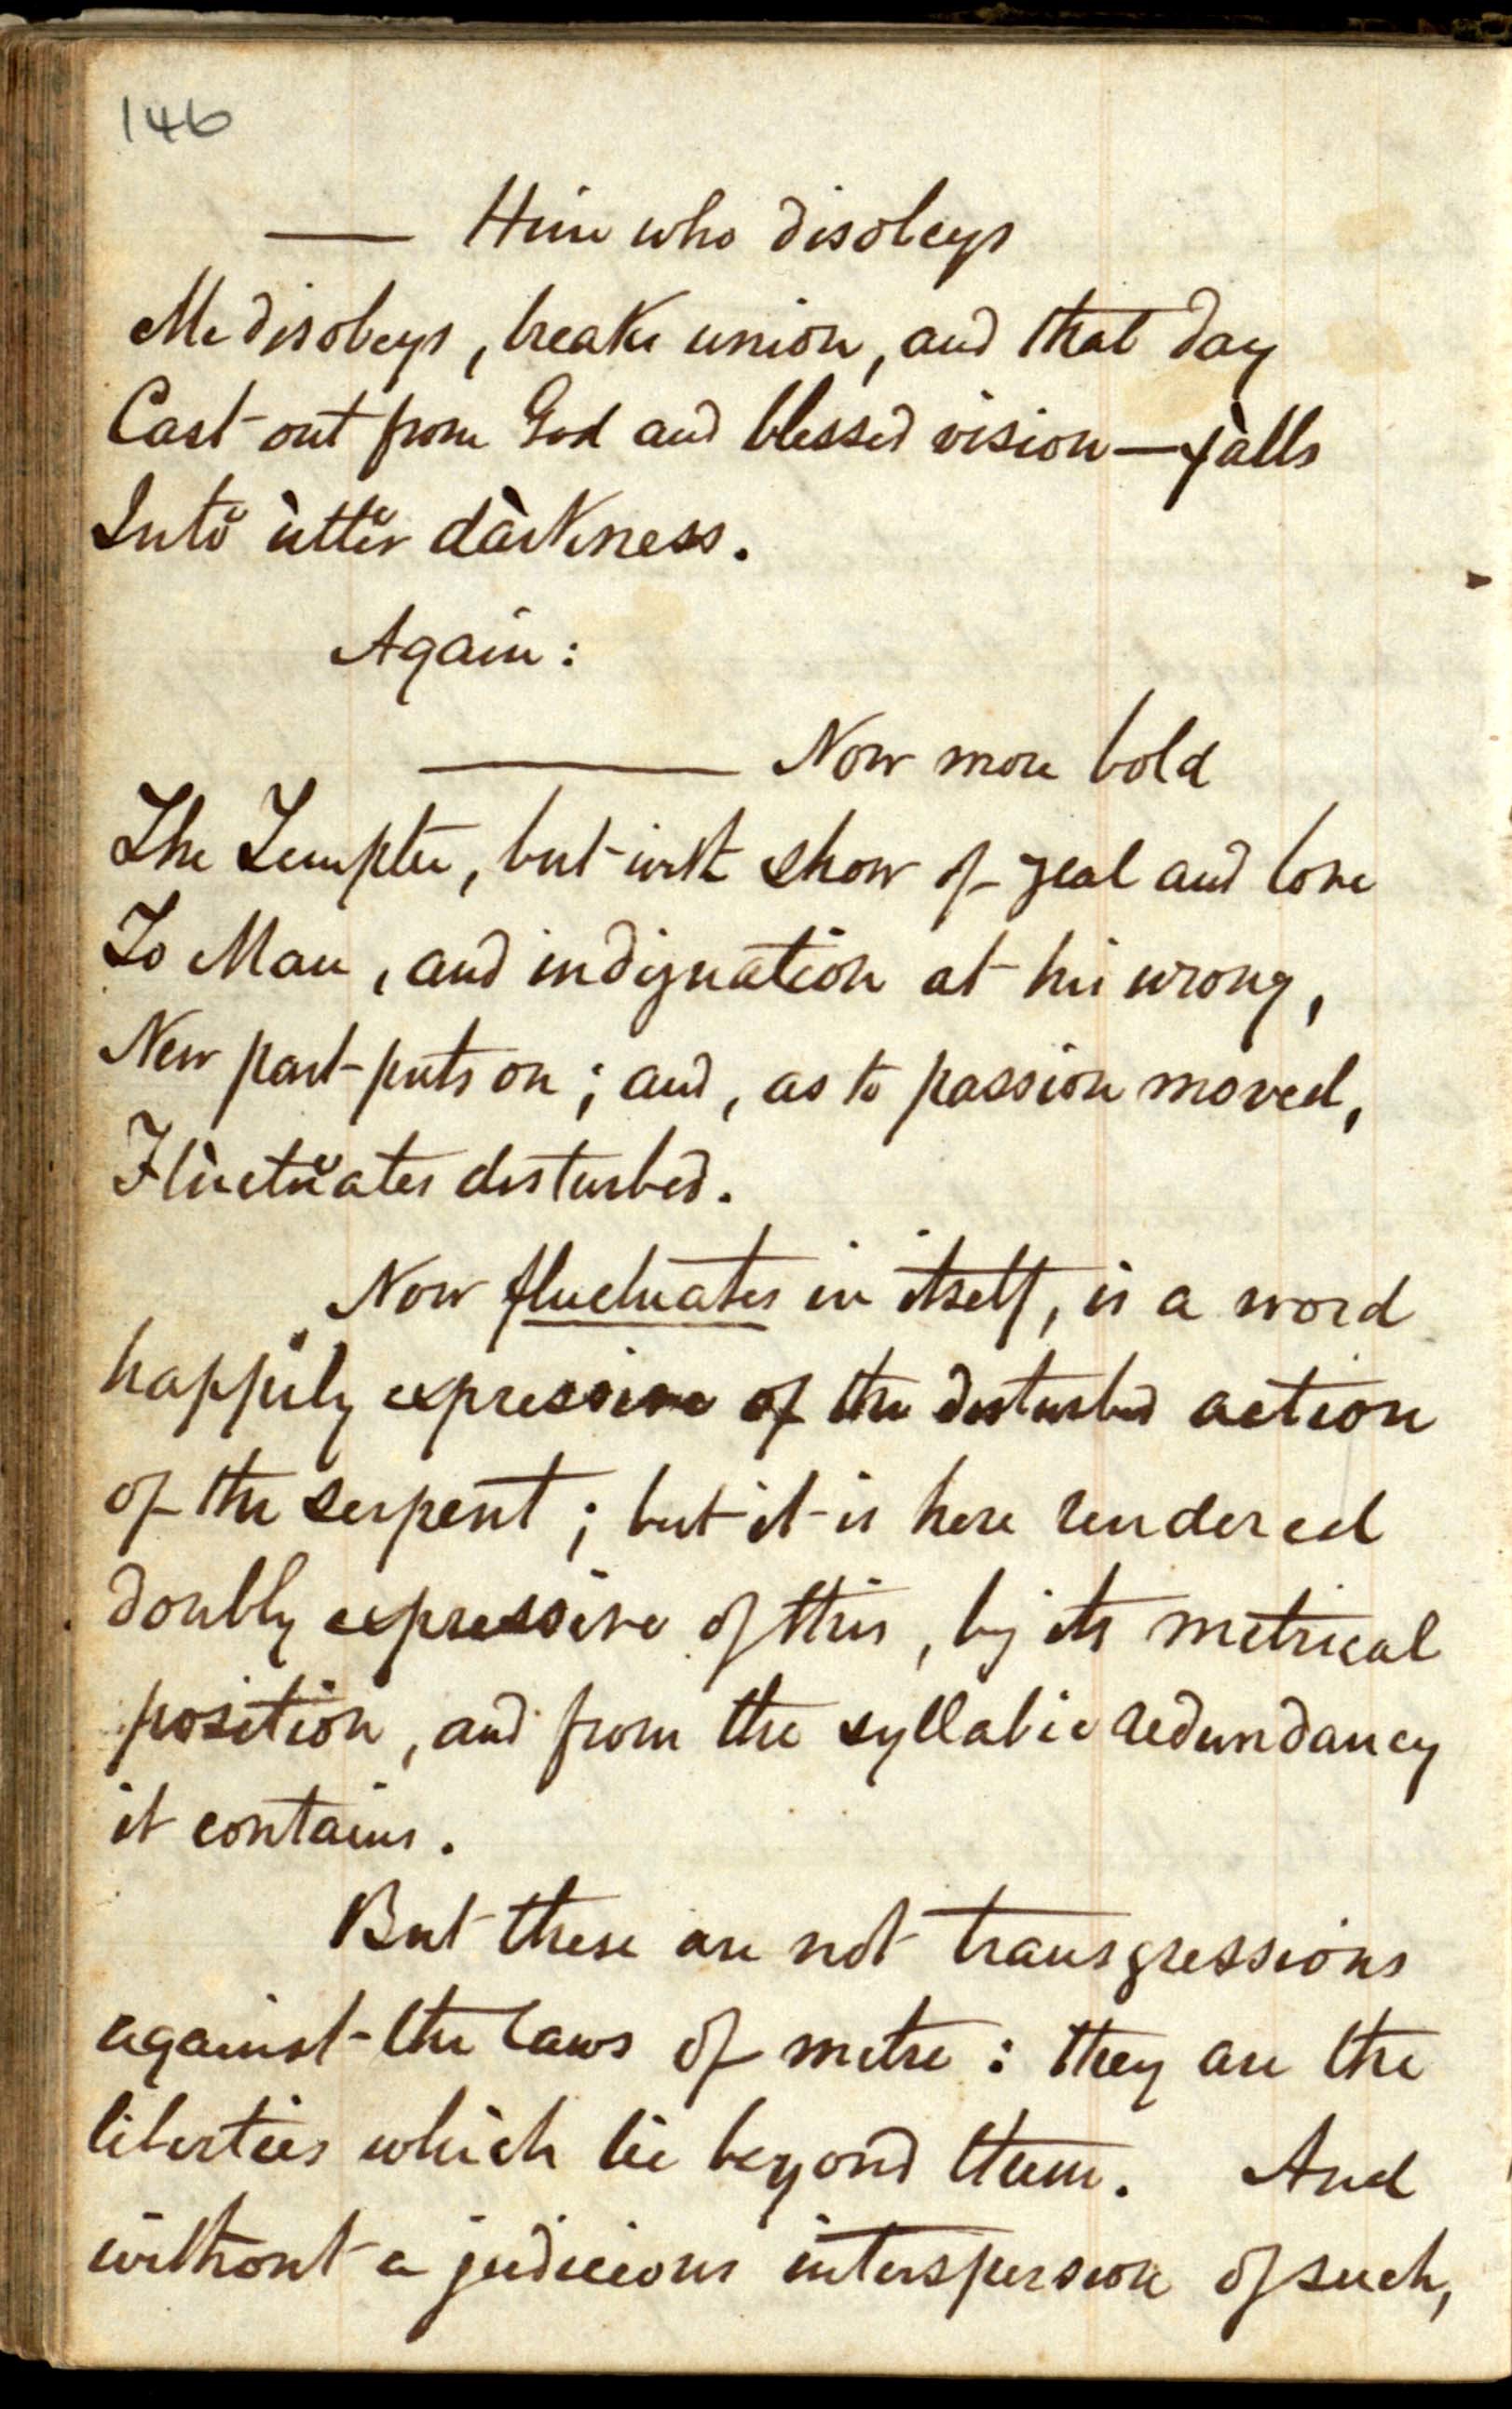 146
—— Him who disobeys
Me disobeys, breaks union, and that day
Cast out from God and blessed vision — fàlls
Intŏ ùttĕr dàrkness.
Again:
———— Now more bold
The Tempter, but with show of zeal and love
To Man, and indignation at his wrong,
New part puts on; and, as to passion moved,
Flùctŭates disturbed.
Now fluctuates in itself, is a word
happily expressive of the disturbed action
of the serpent; but it is here rendered
doubly expressive of this, by its metrical
position, and from the syllabic redundancy
it contains.
But these are not transgressions
against the laws of metre: they are the
liberties which lie beyond them. And
without a judicious interspersion of such,